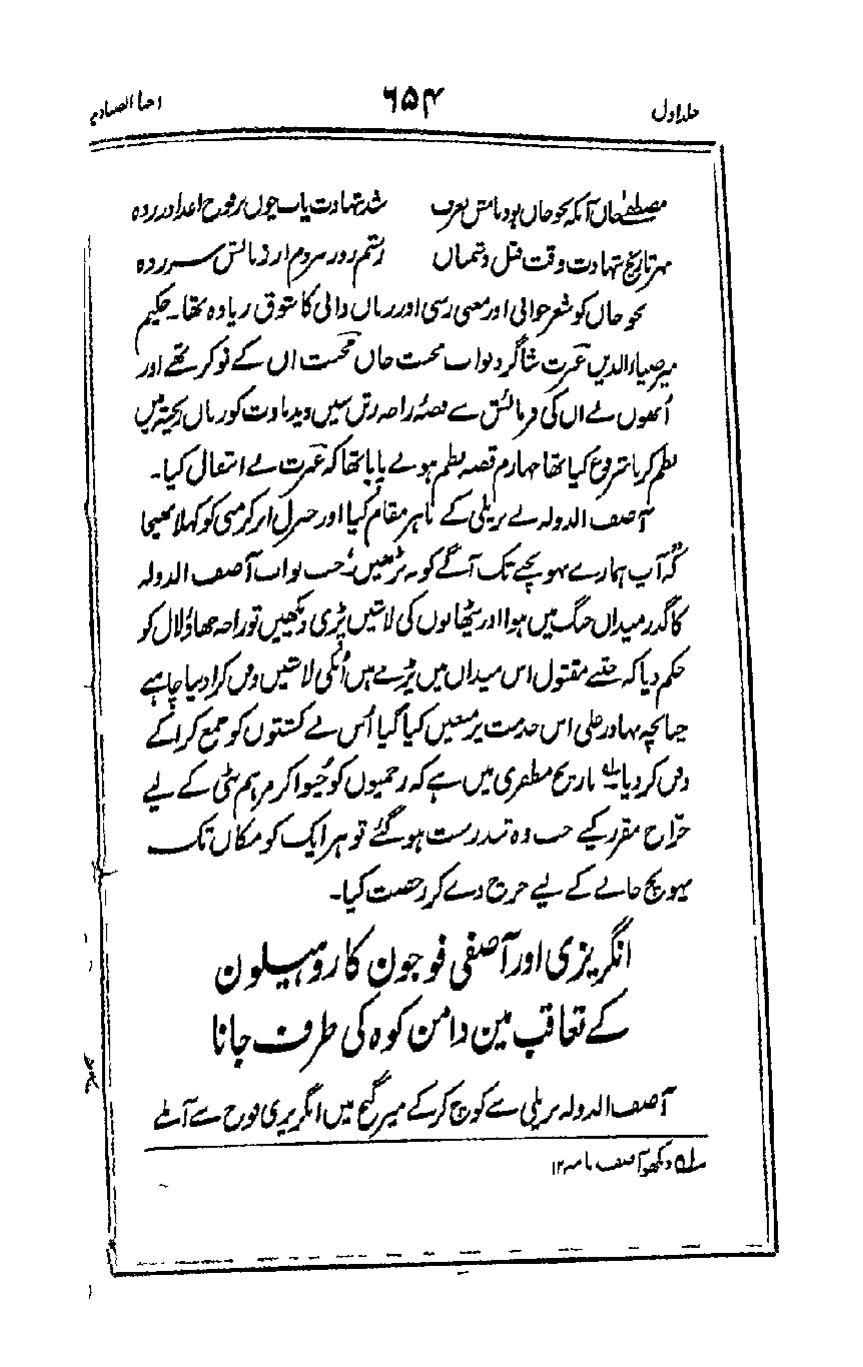 جلد اول ۶۵۴ اخبار الصنادید
مصطفےٰ خاں آنکہ نجو خاں بود نامش بعرف شد شہادت یاب چوں بر فوج اعدا در زدہ
بہر تاریخ شہادت وقت قتل دشمناں رستم دوز سر دم از
نجو خاں کو شعر خوانی اور معنی رسی اور زباں دانی کا شوق زیادہ تھا۔ حکیم
میر ضیاء الدین عبرت شاگرد نواب محبت خاں محبت ان کے نوکر تھے اور
اُنھوں نے ان کی فرمائش سے قصۂ راجہ رتن سین و پدماوت کو زباں ریختہ میں
نظم کرنا شروع کیا تھا چہارم قصہ نظم ہونے پایا تھا کہ عبرت نے انتقال کیا۔
آصف الدولہ نے بریلی کے باہر مقام کیا اور جنرل ابرکرمبی کو کہلا بھیجا
کہ آپ ہمارے پہونچنے تک آگے کو نہ بڑھیں۔ جب نواب آصف الدولہ
کا گذر میدان جنگ میں ہوا اور پٹھانوں کی لاشیں پڑی دیکھیں تو راجہ جھاؤلال کو
حکم دیا کہ جتنے مقتول اس میداں میں پڑے ہیں اُنکی لاشیں دفن کرا دینا چاہیے
چنانچہ بہادر علی اس خدمت پر معین کیا گیا اُس نے کشتوں کو جمع کرا کے
دفن کر دیا ؎ تاریخ مظفری میں ہے کہ زخمیوں کو جنوا کر مرہم پٹی کے لیے
جرّاح مقرر کیے جب وہ تندرست ہو گئے تو ہر ایک کو مکاں تک
پہونچ جانے کے لیے خرچ دے کر رخصت کیا۔
انگریزی اور آصفی فوجون کا روہیلون
کے تعاقب مین دامن کوہ کی طرف جانا
آصف الدولہ بریلی سے کوچ کر کے میر گنج میں انگریزی فوج سے آملے
؎ دیکھو آصف نامہ ۱۲